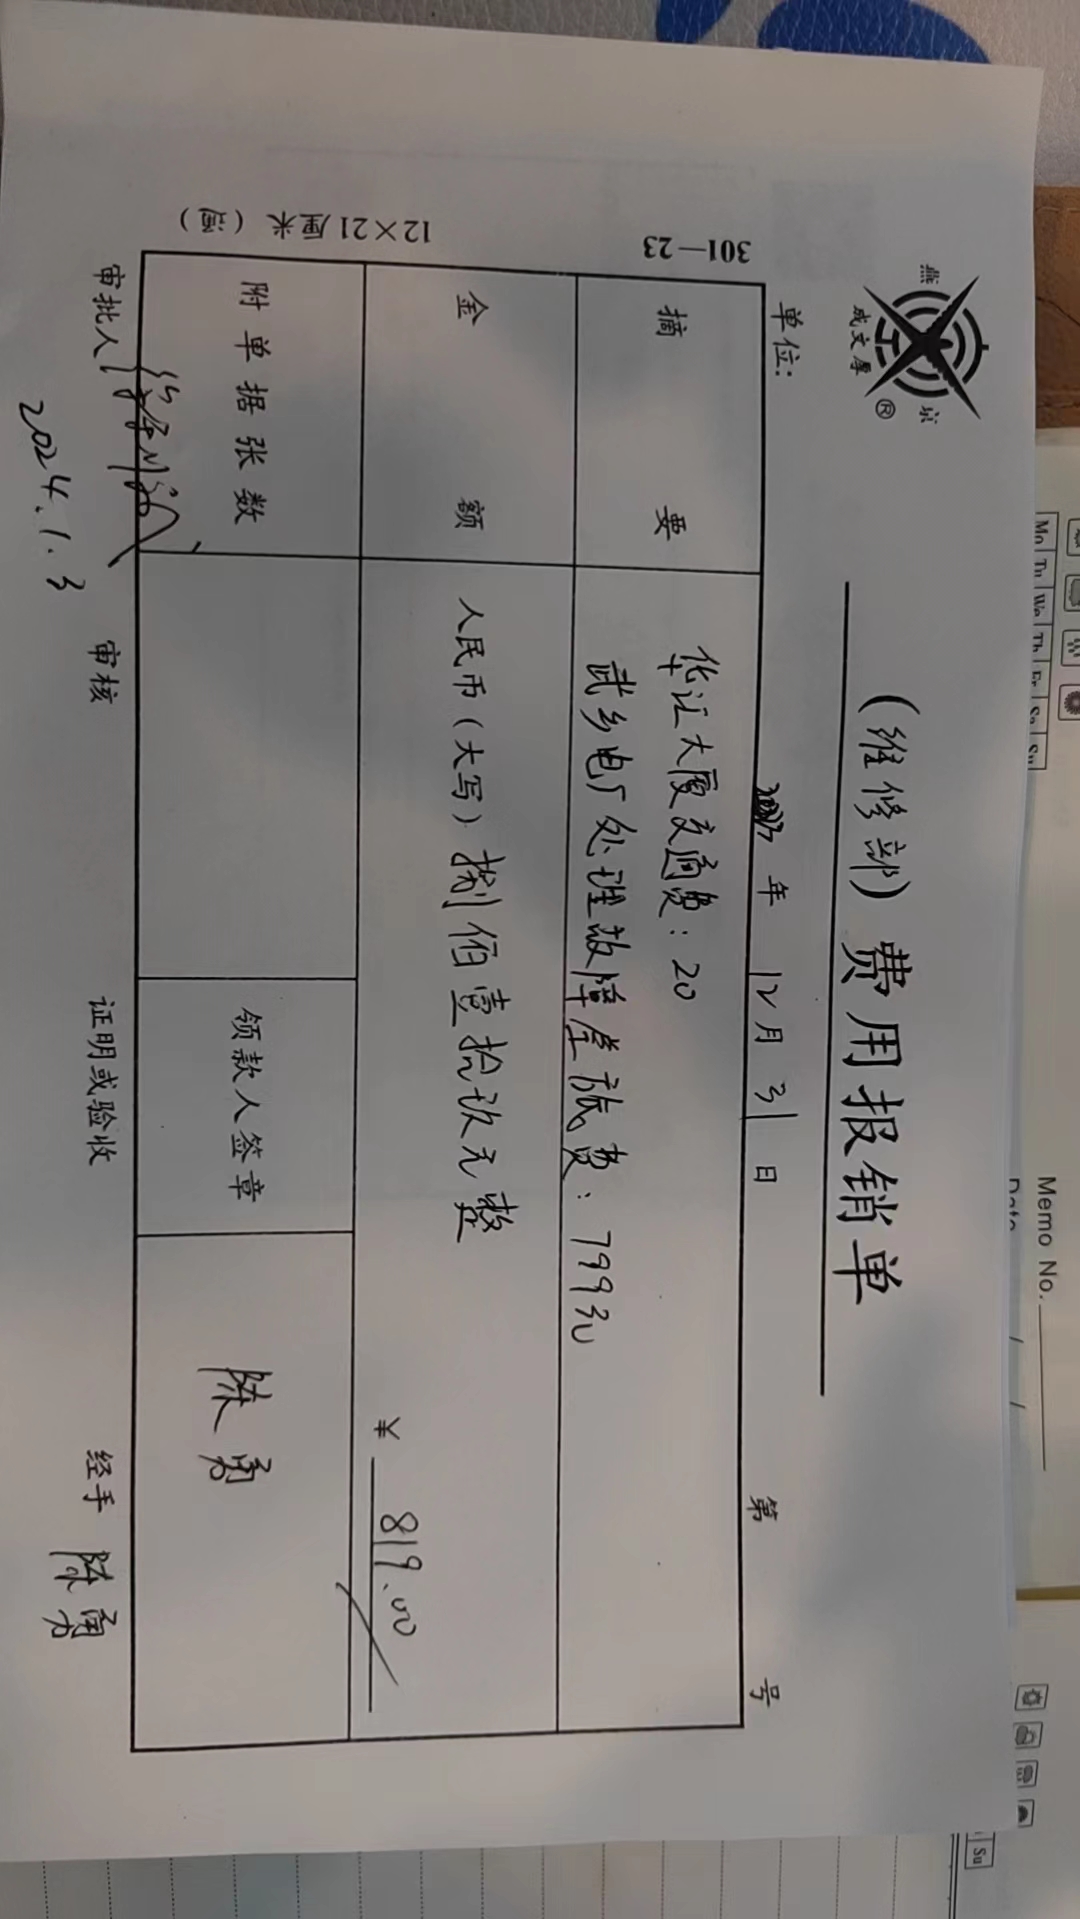 燕京
成文厚®
(维修部)费用报销单
单位:
年12月31日 第 号
301—23
摘要
华证大厦交通费:20
武乡电厂处理故障差旅费:799元
金额
人民币(大写)捌佰壹拾玖元整
¥ 819.00
12×21厘米
附单据张数
领款人签章
陈勇
审批人
审核
证明或验收
经手 陈勇
2024.1.3
Memo No.
Mo Tu We Th Fr Sa Su
Su